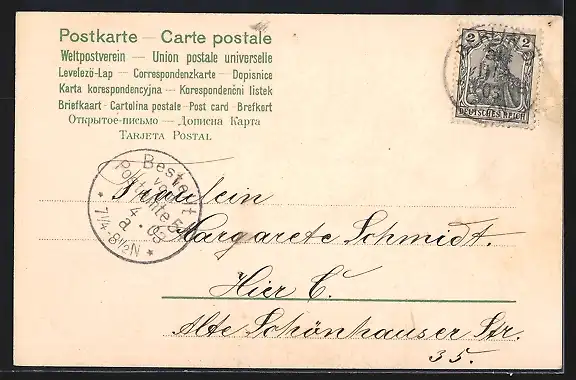 Postkarte — Carte postale
Weltpostverein — Union postale universelle
Levelező-Lap — Correspondenzkarte — Dopisnice
Karta korespondencyjna — Korespondenčni listek
Briefkaart - Cartolina postale - Post card - Brefkort
Открытое-письмо — Дописна Карта
Tarjeta Postal
2 2
DEUTSCHES REICH
BERLIN
Bestellt
vom
Postamte
4
a · 03
7¼-8½N
Fräulein
Margarete Schmidt.
Hier C.
Alte Schönhauser Str.
35.